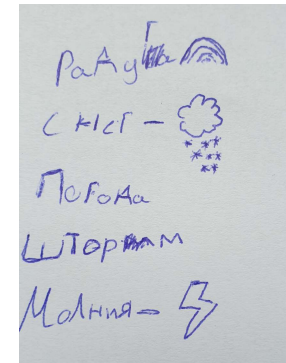 Радуга
СНЕГ -
Погода
Шторм
Молния -